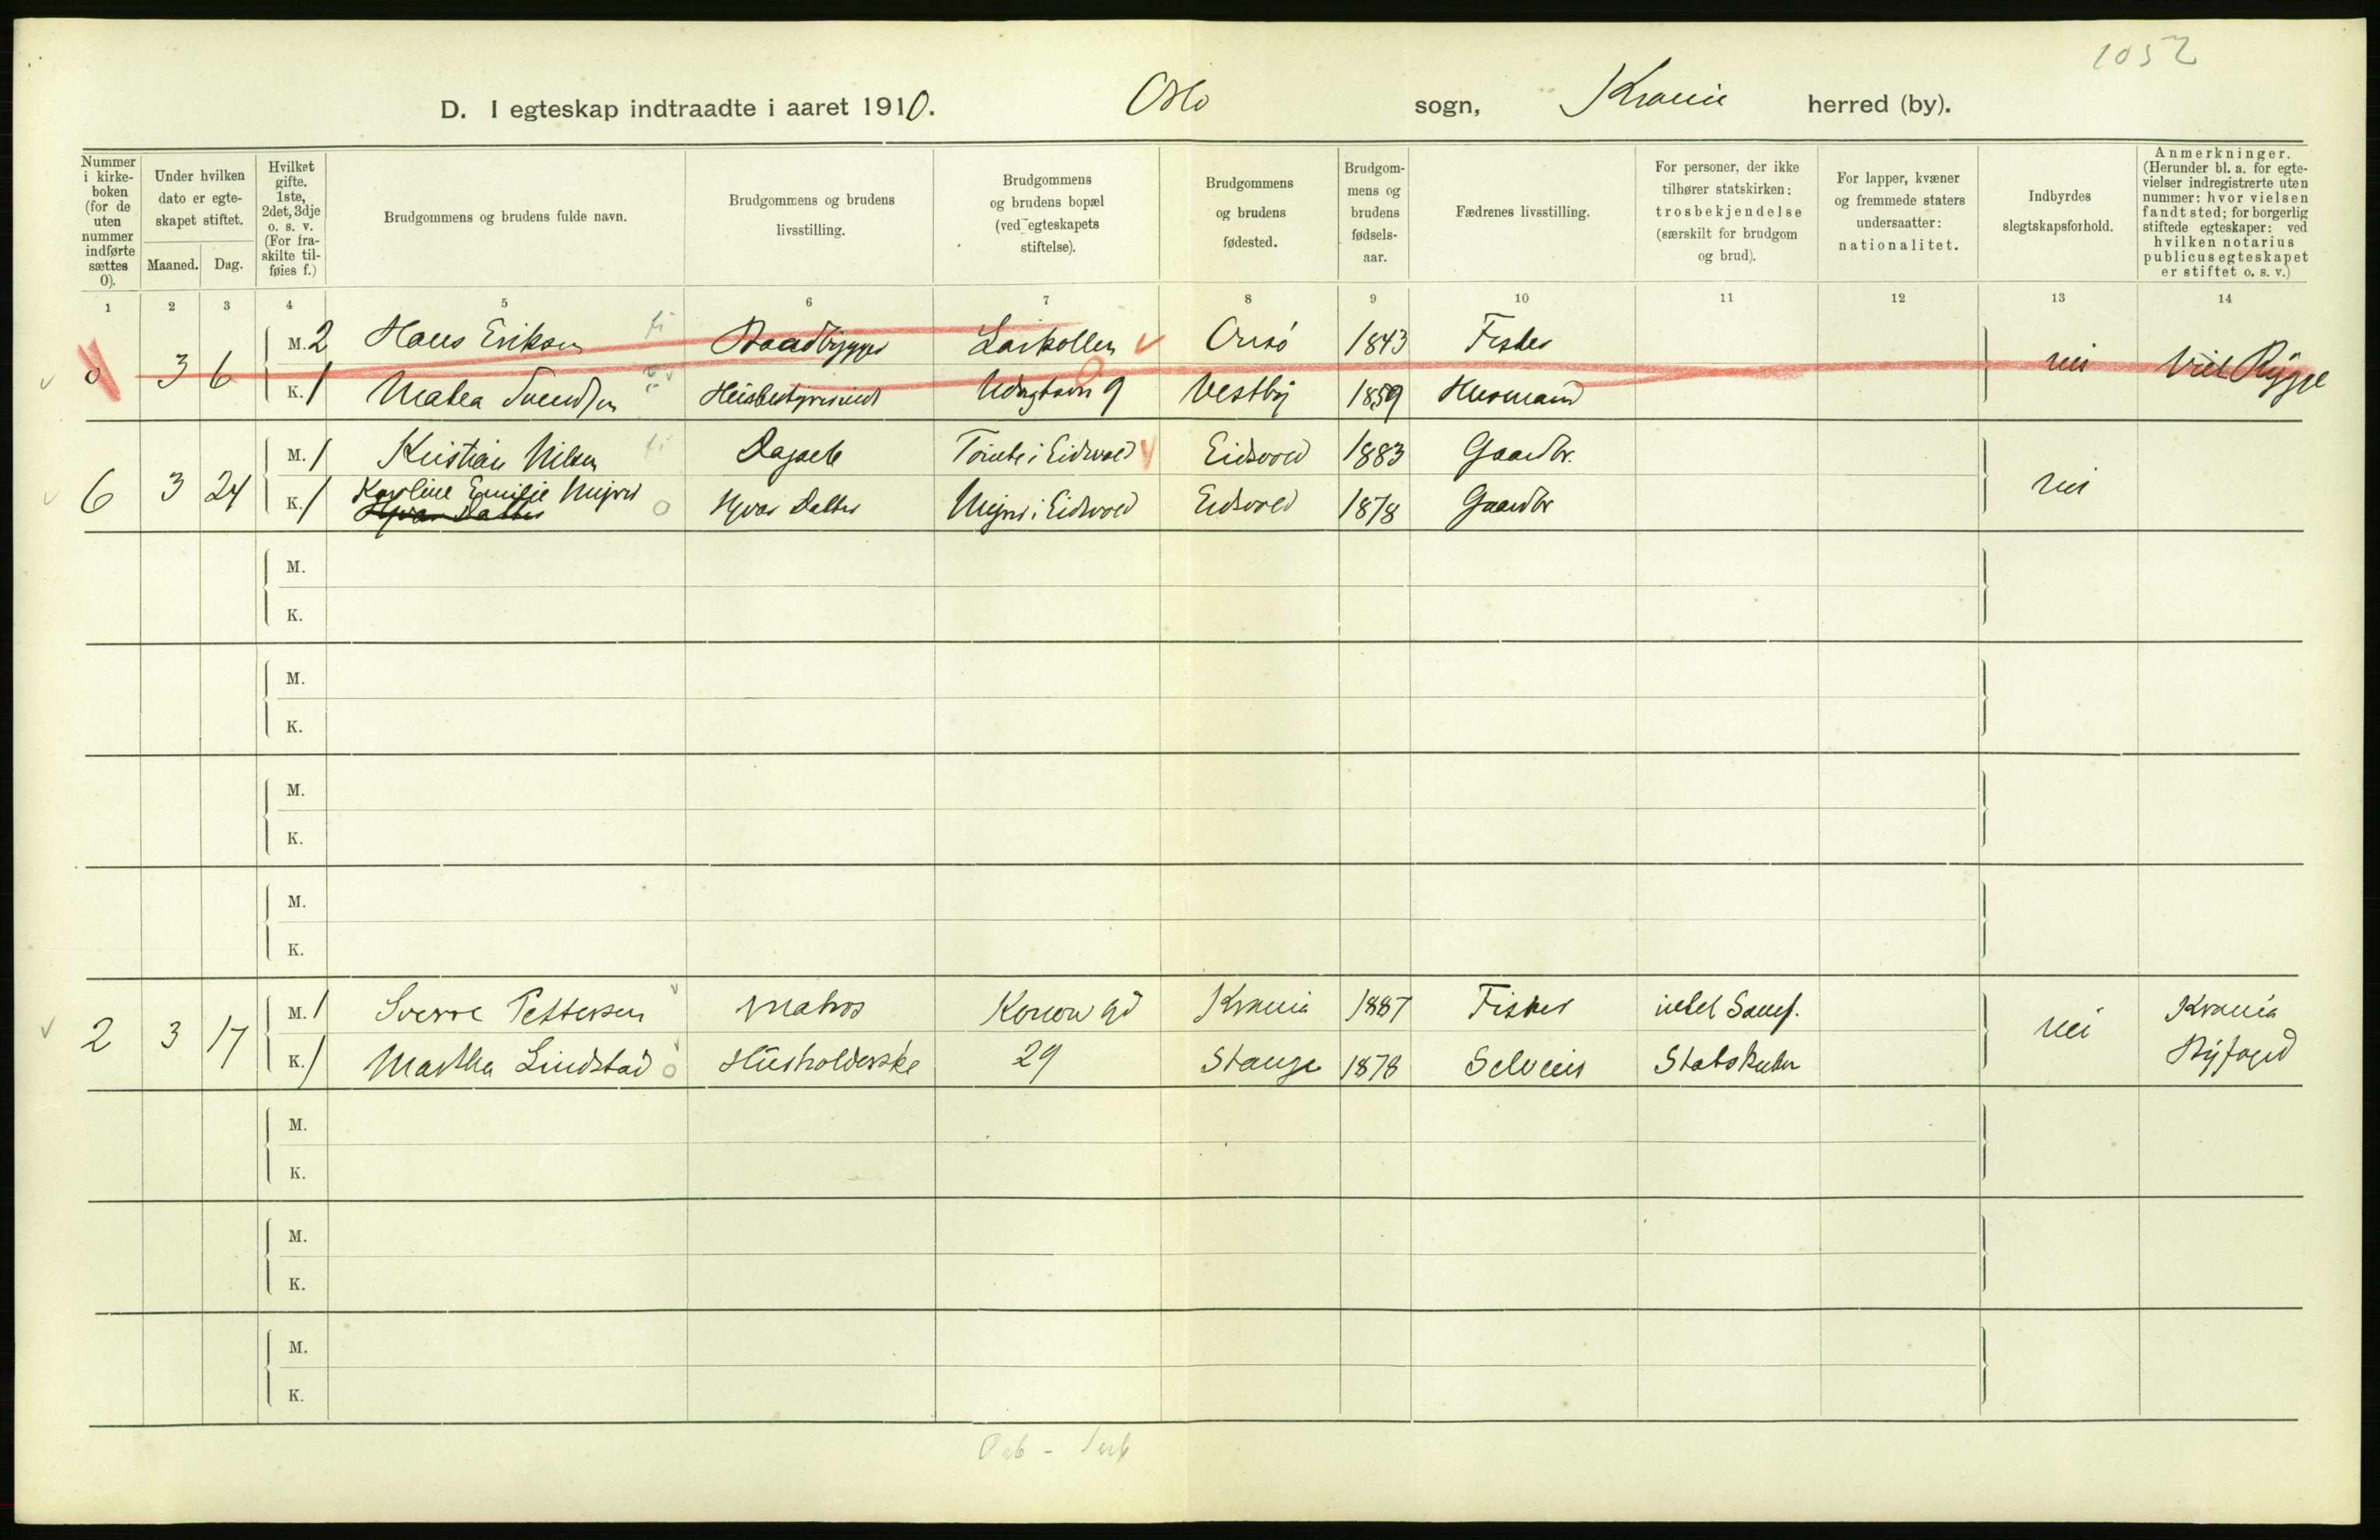 1052
D. I egteskap indtraadte i aaret 1910. Oslo sogn, Krania herred (by).
Nummer i kirke-boken (for de uten nummer indførte sættes 0).
Under hvilken dato er egte-skapet stiftet.
Maaned. Dag.
Hvilket gifte. 1ste, 2det, 3dje o. s. v. (For fra-skilte til-føies f.)
Brudgommens og brudens fulde navn.
Brudgommens og brudens livsstilling.
Brudgommens og brudens bopæl (ved egteskapets stiftelse).
Brudgommens og brudens fødested.
Brudgom-mens og brudens fødsels-aar.
Fædrenes livsstilling.
For personer, der ikke tilhører statskirken: trosbekjendelse (særskilt for brudgom og brud).
For lapper, kvæner og fremmede staters undersaatter: nationalitet.
Indbyrdes slegtskapsforhold.
Anmerkninger. (Herunder bl. a. for egte-vielser indregistrerte uten nummer: hvor vielsen fandt sted; for borgerlig stiftede egteskaper: ved hvilken notarius publicus egteskapet er stiftet o. s. v.)
1 2 3 4 5 6 7 8 9 10 11 12 13 14
0 3 6 M. 2 Hans Eriksen Baadbygger Larkollen Onsö 1843 Fisker nei Viet Rygge
K. 1 Matea Svendsen 9 Vestby 1859 Husmand
6 3 24 M. 1 Kristian Nilsen Dagarb Tömte i Eidsvold Eidsvold 1883 Gaardbr. nei
K. 1 Karoline Emilie Hjvar Datter i Eidsvold Eidsvold 1878 Gaardbr
M.
K.
M.
K.
M.
K.
M.
K.
2 3 17 M. 1 Sverre Pettersen Matros Konow gd Krania 1887 Fisker udtl Samf. nei Krania
K. 1 Martha Lindstad Husholderske 29 Stange 1878 Selveier Statskirken Byfoged
M.
K.
M.
K.
M.
K.